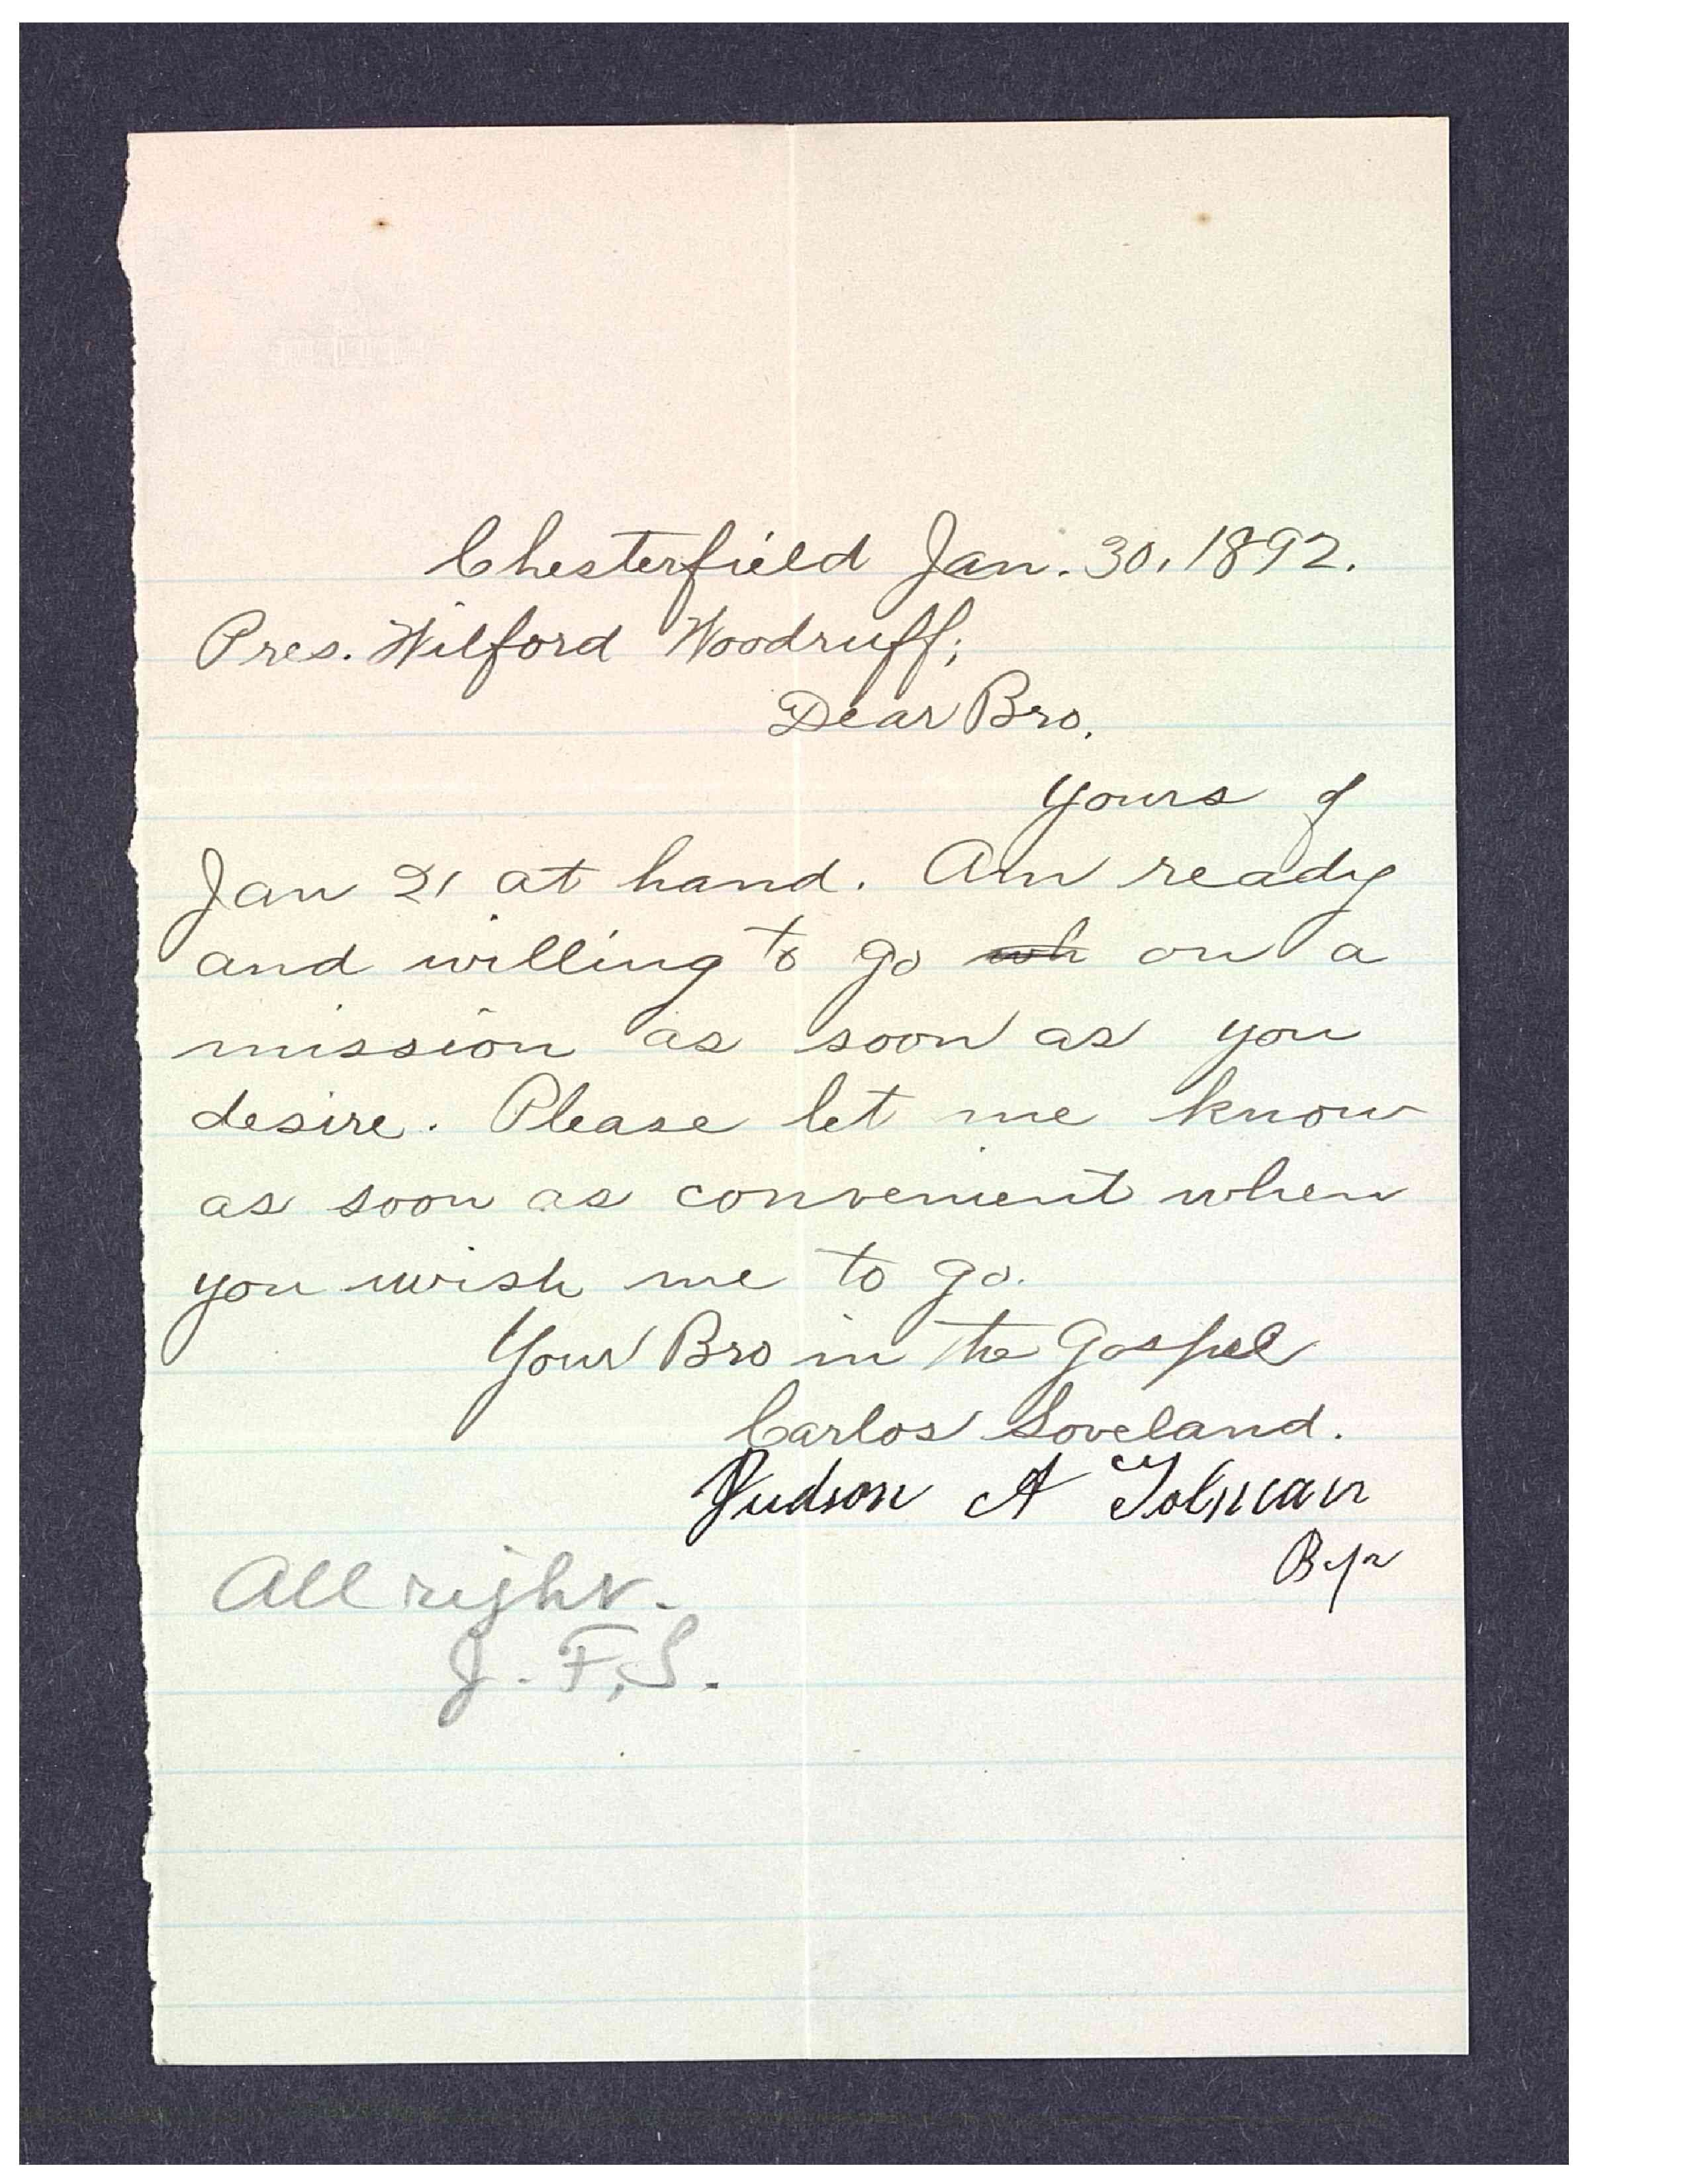 Chesterfield Jan. 30, 1892.
Pres. Wilford Woodruff;
Dear Bro.
Yours of
Jan 21 at hand. Am ready
and willing to go wh on a
mission as soon as you
desire. Please let me know
as soon as convenient when
you wish me to go.
Your Bro in the Gospel
Carlos Loveland.
Judson A Tolman
Bp
All right.
J. F. S.